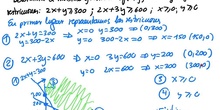 restricciones: 2x+y≥300 ; 2x+3y≥600 ; x≥0, y≥0
En primer lugar representamos las restricciones
① 2x+y=300 ⇒ x=0 y=300 ⇒ (0,300)
y=300-2x y=0 300-2x=0 ⇒ x=150 (150,0)
② 2x+3y=600 ⇒ x=0 3y=600 ⇒ y=200 (0,200)
y=0 2x=600 ⇒ x=300 (300,0)
2x+y=300
③ x≥0
④ y≥0